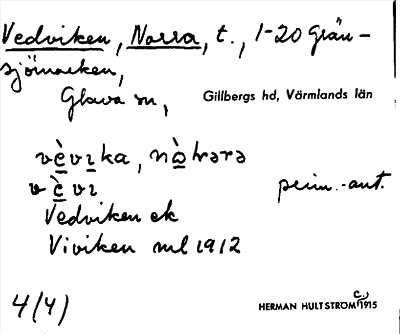 Vedviken, Norra, t., 1-20 Grän-
sjömarken,
Glava sn, Gillbergs hd, Värmlands län
vè̱vı̱ka, nò̱hrərə
vè̱vı peim.-ant.
Vedviken ek
Viviken ml 1912
4(4) HERMAN HULTSTRÖM C:a 1915